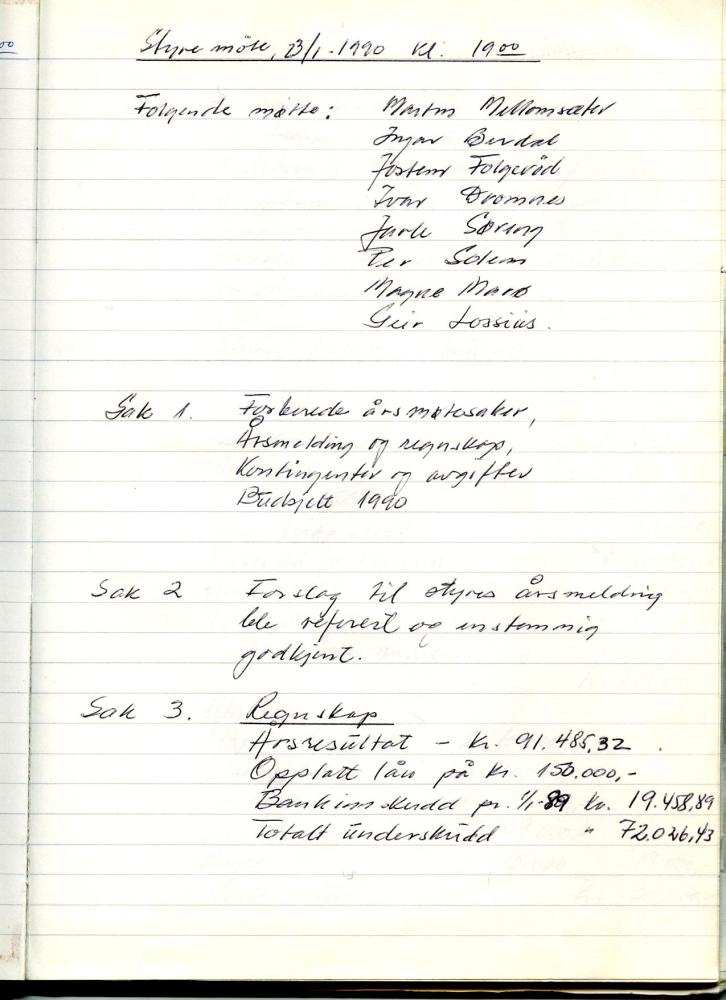 00
Styremöte, 23/1-1990 kl. 19⁰⁰
Følgende møtte: Martin Mellomsæter
Ingar Berdal
Jostein Følgerød
Ivar Dromnes
Jarle Søreng
Per Solem
Magne Marø
Geir Lossius.
Sak 1. Forberede årsmøtesaker,
Årsmelding og regnskap,
Kontingenter og avgifter
Budsjett 1990
Sak 2 Forslag til styres årsmelding
ble referert og enstemmig
godkjent.
Sak 3. Regnskap
Årsresultat - kr. 91.485,32
Opplått lån på kr. 150.000,-
Bankinnskudd pr. 1/1-89 kr. 19.458,89
Totalt underskudd " 72.026,43